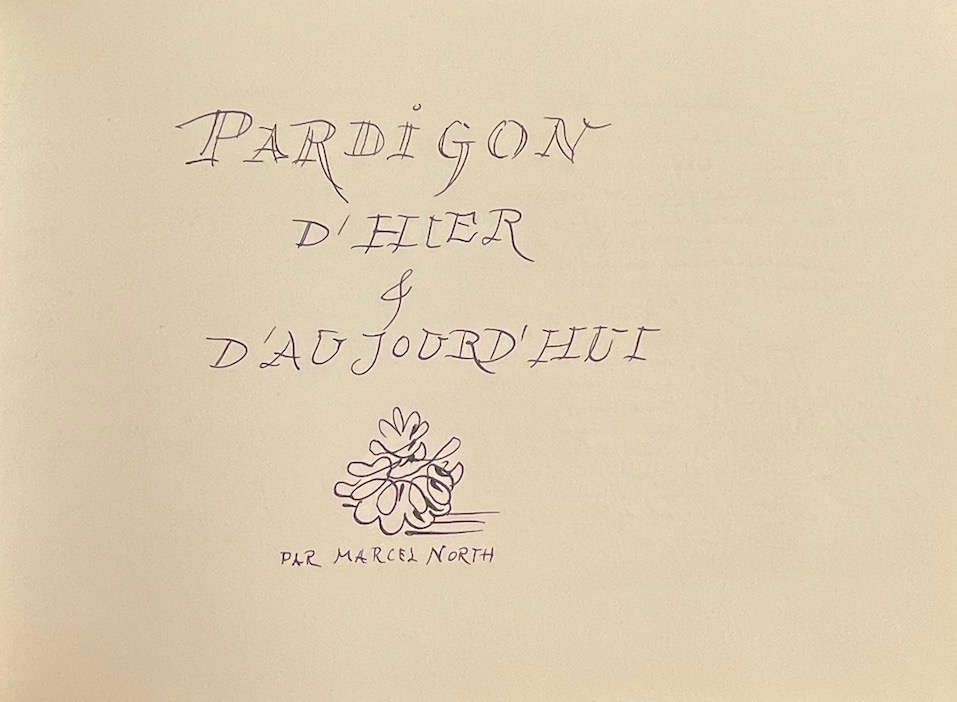 PARDIGON
D'HIER
&
D'AUJOURD'HUI
PAR MARCEL NORTH